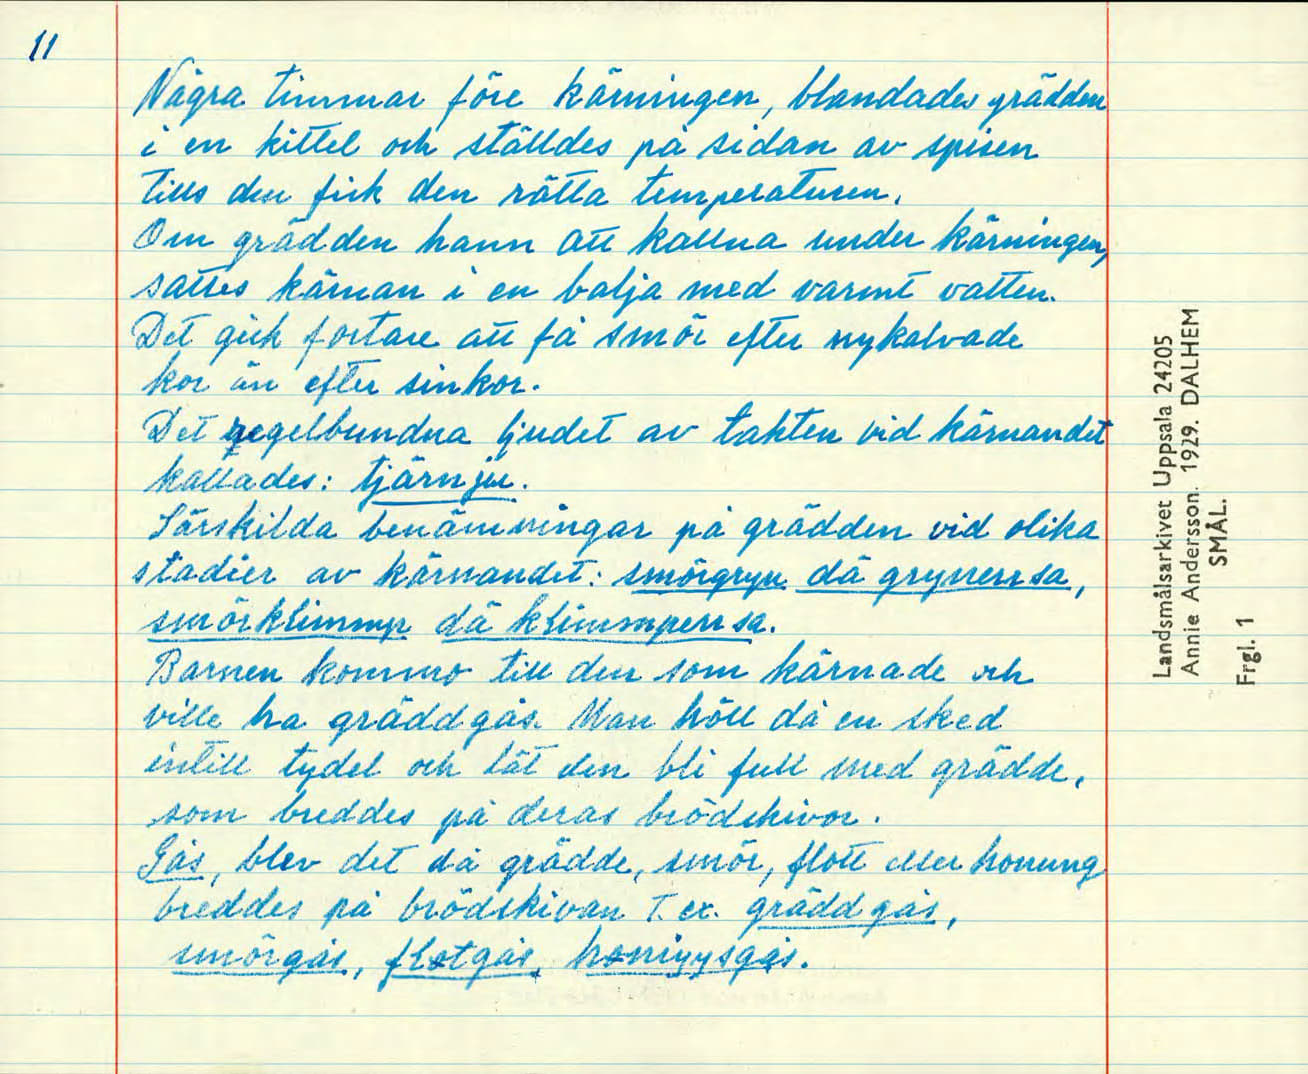 11
Några timmar före kärningen, blandades grädden
i en kittel och ställdes på sidan av spisen
tills den fick den rätta temperaturen.
Om grädden hann att kallna under kärningen,
sattes kärnan i en balja med varmt vatten.
Det gick fortare att få smör efter nykalvade
kor än efter sinkor.
Det regelbundna ljudet av takten vid kärnandet
kallades: tjärnju.
Särskilda benämningar på grädden vid olika
stadier av kärnandet: smörgryn då grynersa,
smörklimmp då klimmpersa.
Barnen kommo till den som kärnade och
ville ha gräddgås. Man höll då en sked
intill tydel och lät den bli full med grädde,
som breddes på deras brödskivor.
Gås, blev det då grädde, smör, flott eller honung
breddes på brödskivan T. ex. gräddgås,
smörgås, flotgås,
Landsmålsarkivet Uppsala 24205
Annie Andersson. 1929. DALHEM
SMÅL.
Frgl. 1